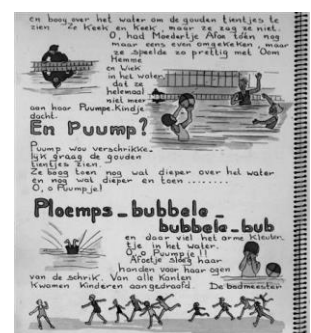 en boog over het water om de gouden tientjes te
zien. Ze keek en keek, maar ze zag ze niet.
O, had Moedertje Afoe toen nog
maar eens even omgekeken, maar
ze speelde zo prettig met Oom
Hemme
en Wiek
in het water
dat ze
helemaal
niet meer
aan haar Puumpe-Kindje
dacht.
En Puump?
Puump wou verschrikke-
lijk graag de gouden
tientjes zien.
Ze boog toen nog wat dieper over het water
en nog wat dieper en toen ........
O, o Puumpje!
Ploemps - bubbele -
bubbele - bub
en daar viel het arme Kleuter-
tje in het water.
O, o Puumpje!!
Afoetje sloeg haar
handen voor haar ogen
van de schrik. Van alle Kanten
Kwamen Kinderen aangedraafd. De badmeester